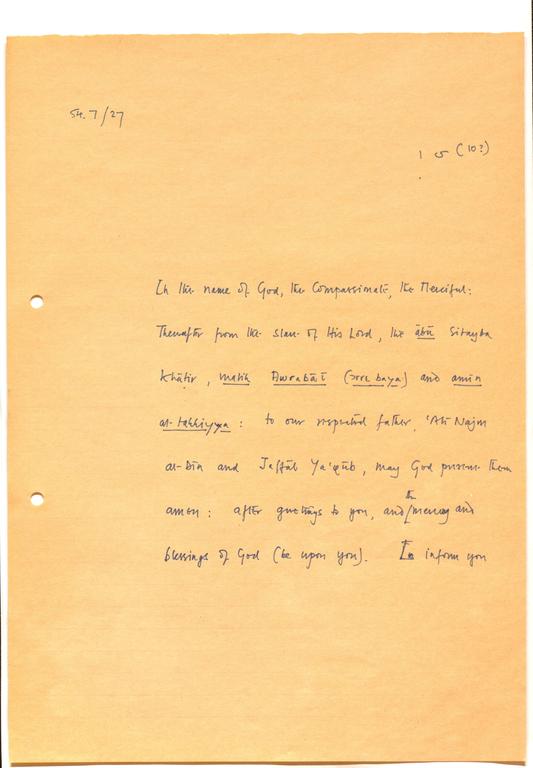 54.7/27
1 5 (10?)
In the name of God, the Compassionate, the Merciful:
Thereafter from the slave of His Lord, the abū Sitayba
Khātir, malik Awrabāṭ (sore baya) and amīn
at-takkiyya: to our respected father, 'Ali Najm
al-Din and Jaffāl Ya'qūb, may God preserve them
amen: after greetings to you, and the mercy and
blessings of God (be upon you). To inform you